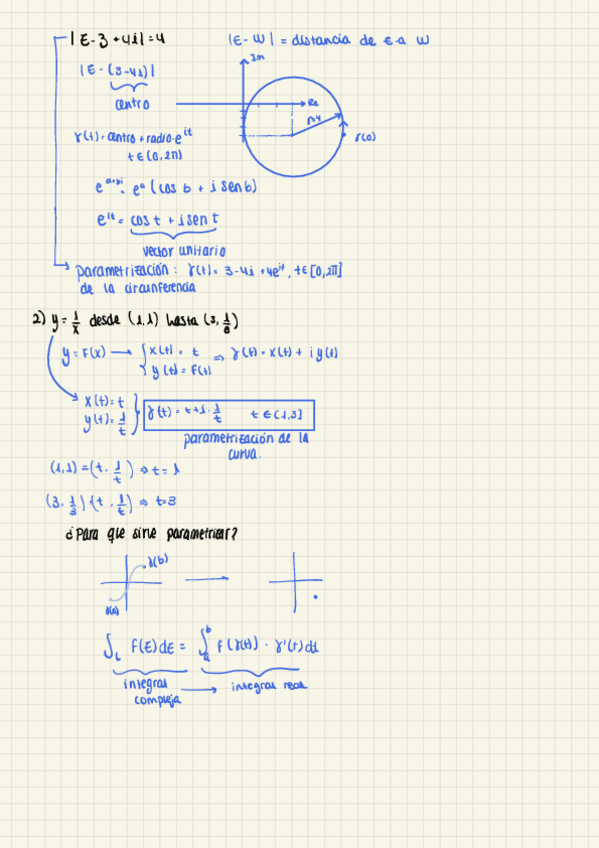 |z-3+4i|=4
|z-w| = distancia de z a w
|z-(3-4i)|
centro
Im
Re
r=4
γ(0)
γ(t)=centro+radio·e^it
t∈(0,2π)
e^a+bi = e^a (cos b + i sen b)
e^it = cos t + i sen t
vector unitario
parametrización: γ(t)= 3-4i+4e^it, t∈[0,2π]
de la circunferencia
2) y = 1/x desde (1,1) hasta (3,1/3)
y=F(x) → { x(t) = t ⇒ γ(t)=x(t)+ i y(t)
y(t)=F(t)
x(t)=t
y(t)=1/t
γ(t)= t+i·1/t t∈[1,3]
parametrización de la
curva.
(1,1)=(t,1/t) ⇒ t=1
(3,1/3)=(t,1/t) ⇒ t=3
¿Para que sirve parametrizar?
γ(b)
γ(a)
∫_L F(z)dz = ∫_a^b F(γ(t))·γ'(t)dt
integral → integral real
compleja